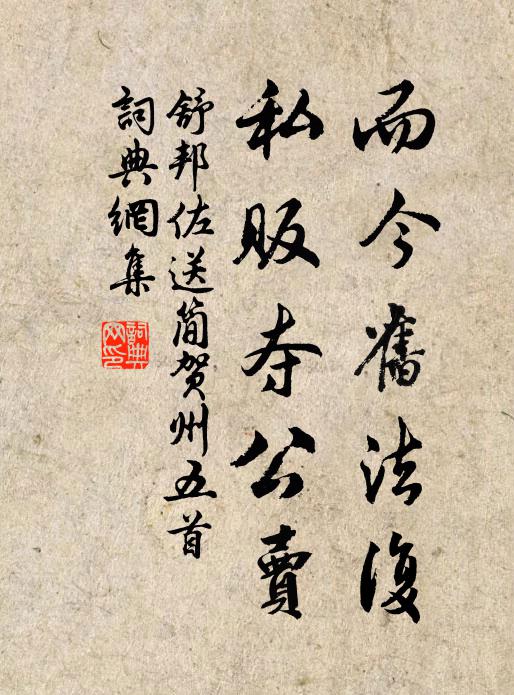 而今舊法復
私販夺公賣
舒邦佐送简贺州五首
詞典網集
詞典网印